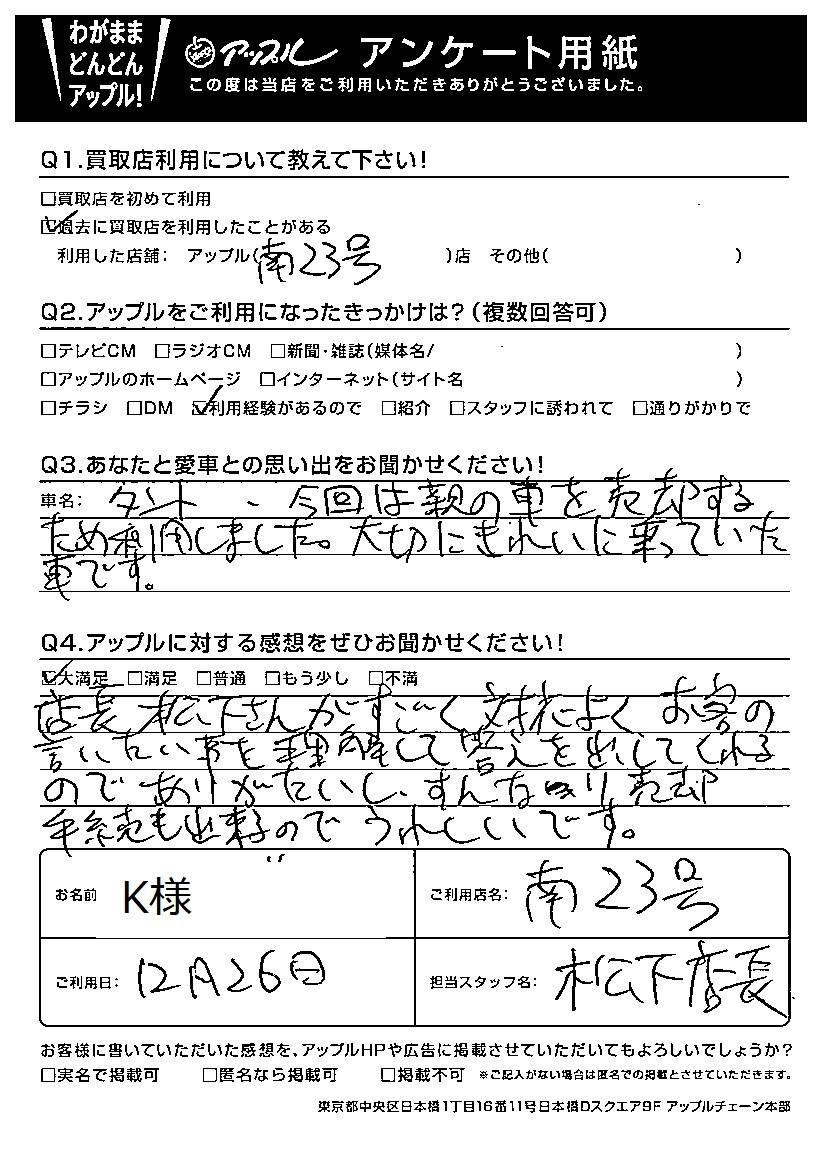 わがまま
どんどん
アップル!
アップル アンケート用紙
この度は当店をご利用いただきありがとうございました。
Q1.買取店利用について教えて下さい!
□買取店を初めて利用
☑過去に買取店を利用したことがある
利用した店舗: アップル(南23号)店 その他( )
Q2.アップルをご利用になったきっかけは?(複数回答可)
□テレビCM □ラジオCM □新聞・雑誌(媒体名/ )
□アップルのホームページ □インターネット(サイト名 )
□チラシ □DM ☑利用経験があるので □紹介 □スタッフに誘われて □通りがかりで
Q3.あなたと愛車との思い出をお聞かせください!
車名: タント 、今回は親の車を売却する
ため利用しました。大切にきれいに乗っていた
車です。
Q4.アップルに対する感想をぜひお聞かせください!
☑大満足 □満足 □普通 □もう少し □不満
店長 松下さんがすごく対応よく お客の
言いたい事を理解して答えを出してくれる
のでありがたいし、すんなり売却
手続きも出来るのでうれしいです。
お名前 K様
ご利用店名: 南23号
ご利用日: 12月26日
担当スタッフ名: 松下店長
お客様に書いていただいた感想を、アップルHPや広告に掲載させていただいてもよろしいでしょうか?
□実名で掲載可 □匿名なら掲載可 □掲載不可 ※ご記入がない場合は匿名での掲載とさせていただきます。
東京都中央区日本橋1丁目16番11号日本橋Dスクエア9F アップルチェーン本部